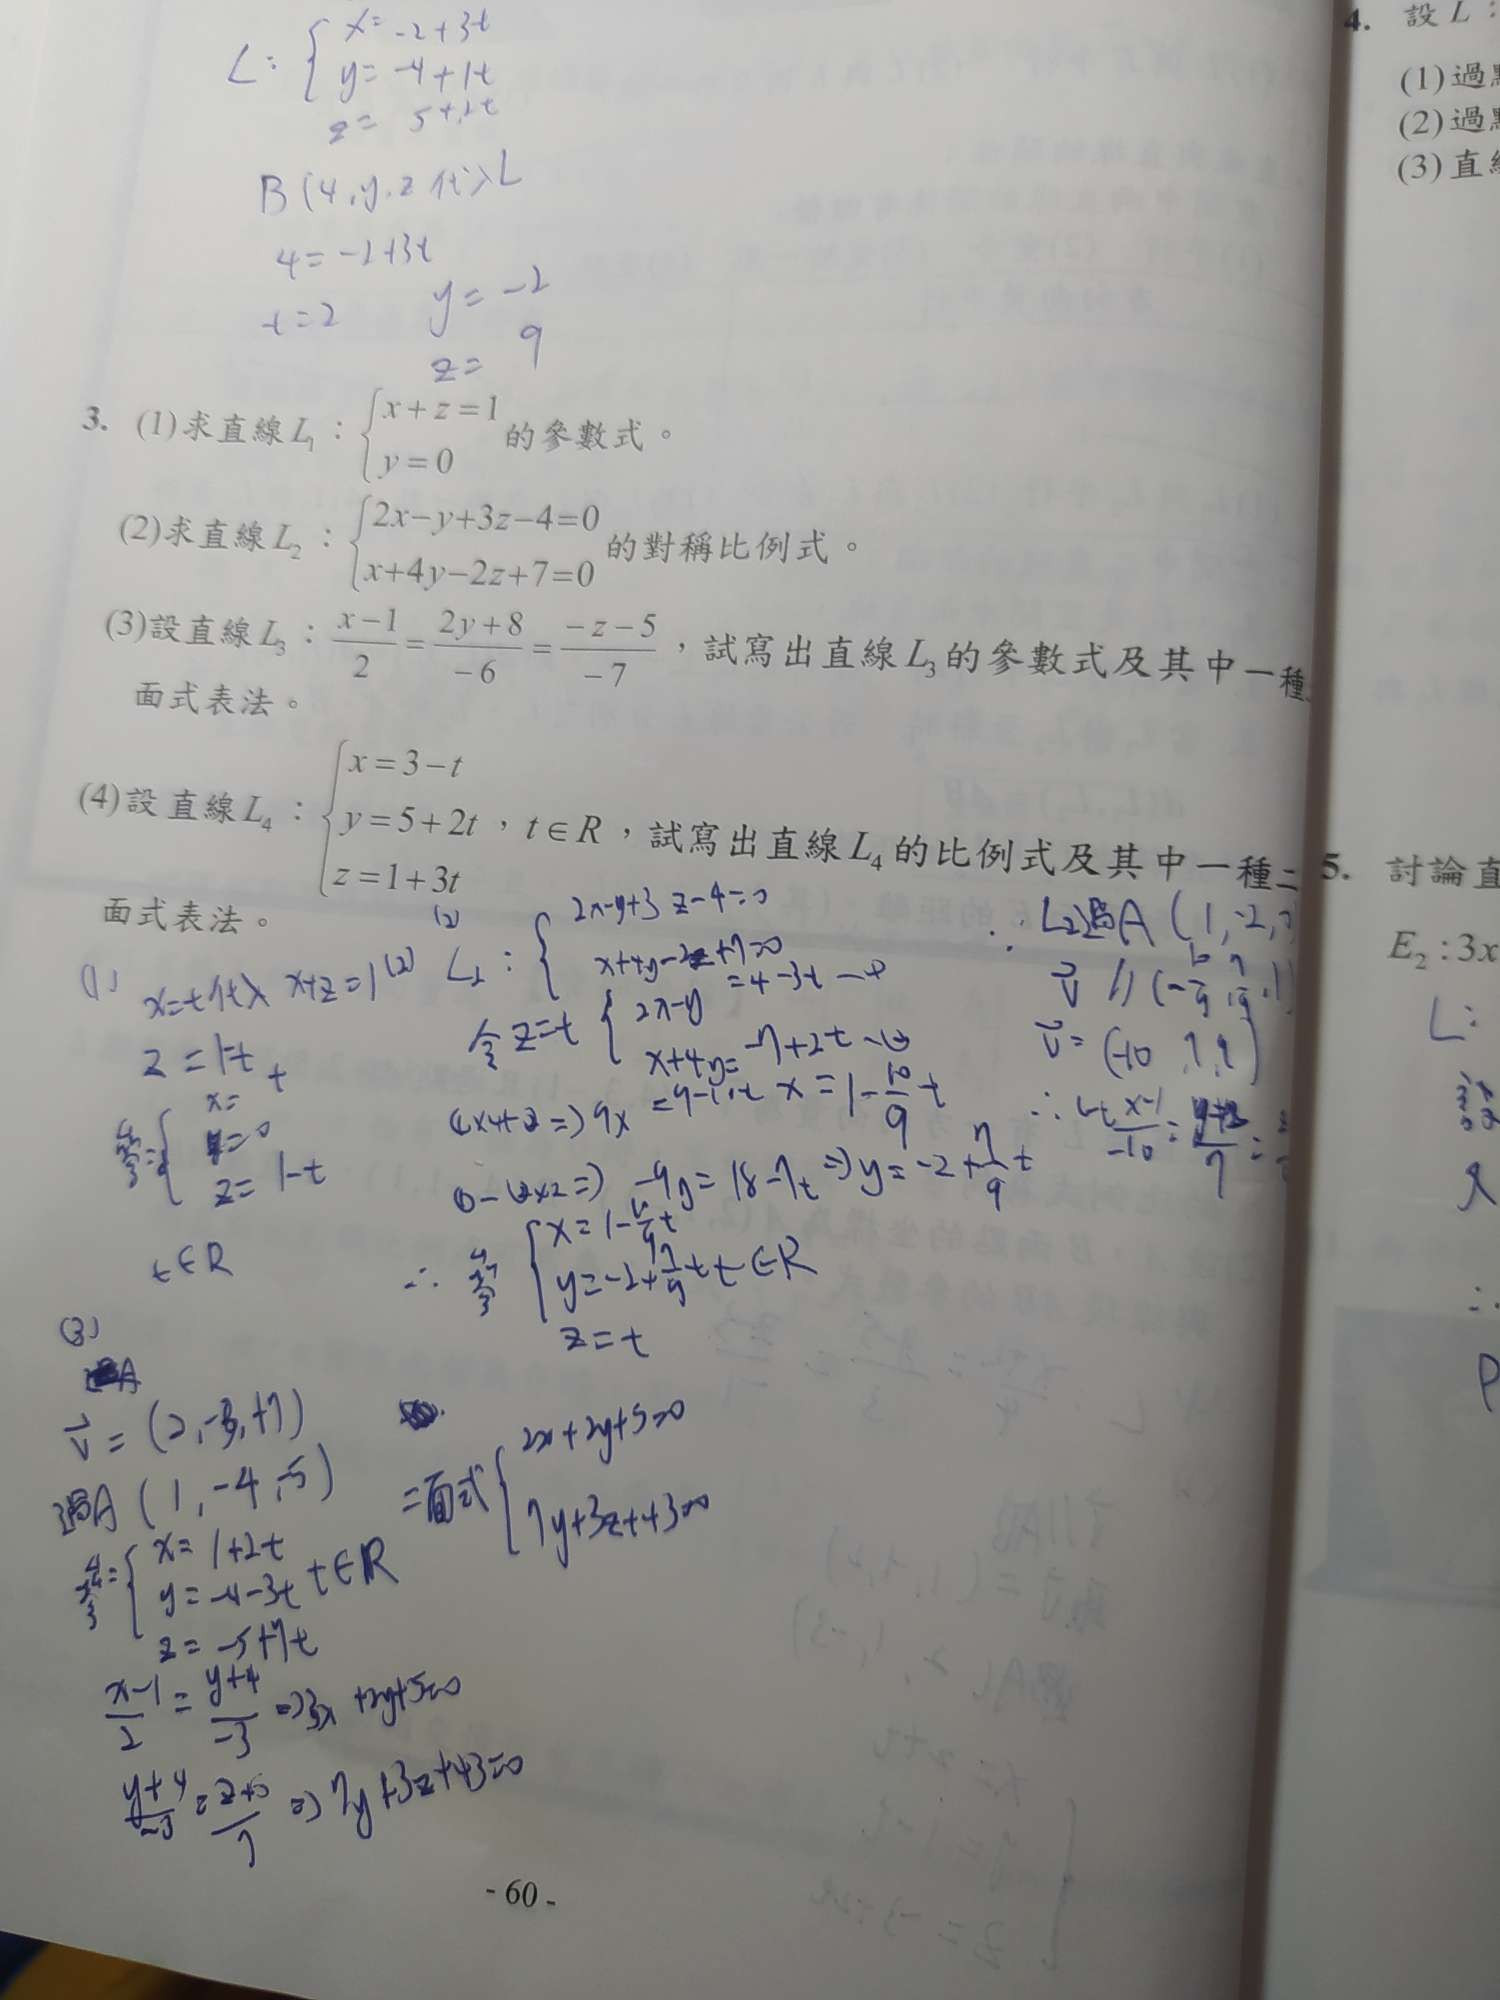 L: { x = -2+3t
y = -4+1t
z = 5+2t
B(4,y,z代入L
4 = -2+3t
t=2 y = -2
z = 9
3. (1)求直線L₁：{ x+z=1
y=0 的參數式。
(2)求直線L₂：{ 2x-y+3z-4=0
x+4y-2z+7=0 的對稱比例式。
(3)設直線L₃：(x-1)/2 = (2y+8)/-6 = (-z-5)/-7，試寫出直線L₃的參數式及其中一種
面式表法。
(4)設直線L₄：{ x=3-t
y=5+2t，t∈R，試寫出直線L₄的比例式及其中一種二
z=1+3t
面式表法。
(1)
x=t代入 x+z=1
z=1-t
參={ x= t
y=0
z=1-t
t∈R
(2) L₂: { 2x-y+3z-4=0
x+4y-2z+7=0
令z=t { 2x-y =4-3t
x+4y=-7+2t
=) 9x =9-10t x=1-10/9 t
-9y=18-7t =) y=-2+7/9 t
∴ 參 { x=1-10/9 t
y=-2+7/9 t t∈R
z=t
∵ L₂過A (1,-2,
v // (-10/9, 7/9, 1)
v= (-10,7,9)
∴ (x-1)/-10 = (y+2)/7 =
(3)
v= (2,-3,+7)
過A (1,-4,-5)
參={ x= 1+2t
y= -4-3t t∈R
z= -5+7t
(x-1)/2 = (y+4)/-3 =) 3x +2y+5=0
(y+4)/-3 = (z+5)/7 =) 7y+3z+43=0
二面式{ 3x+2y+5=0
7y+3z+43=0
- 60 -
4. 設L：
(1)過點
(2)過點
(3)直線
5. 討論直
E₂:3x
L:
設
P